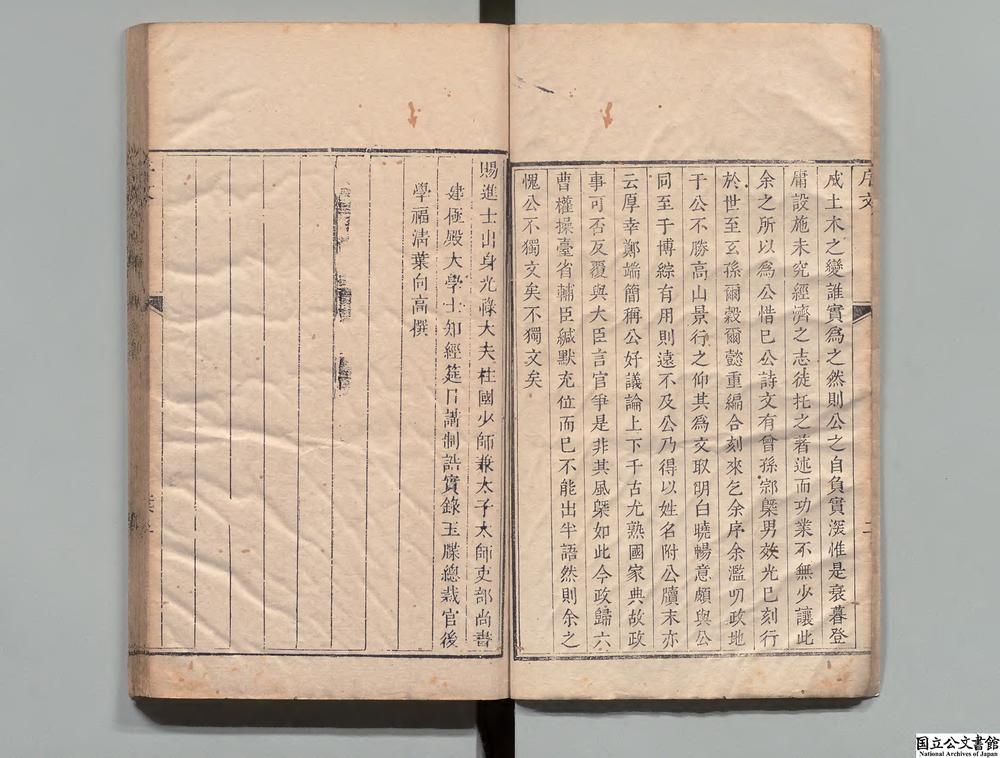 成土木之變誰實爲之然則公之自負實深惟是衰暮登
庸設施未究經濟之志徒托之著述而功業不無少讓此
余之所以爲公惜已公詩文有曾孫郯㮣男效光已刻行
於世至玄孫爾縠爾懿重編合刻來乞余序余濫叨政地
于公不勝高山景行之仰其爲文取明白曉暢意頗與公
同至于博綜有用則遠不及公乃得以姓名附公牘末亦
云厚幸鄭端簡稱公好議論上下千古尤熟國家典故政
事可否反覆與大臣言官爭是非其風槩如此今政歸六
曹權操臺省輔臣緘默充位而已不能出半語然則余之
愧公不獨文矣不獨文矣
賜進士出身光祿大夫柱國少師兼太子太師吏部尚書
建極殿大學士知經筵日講制誥實錄玉牒總裁官後
學福清葉向高撰
序文
二
国立公文書館
National Archives of Japan